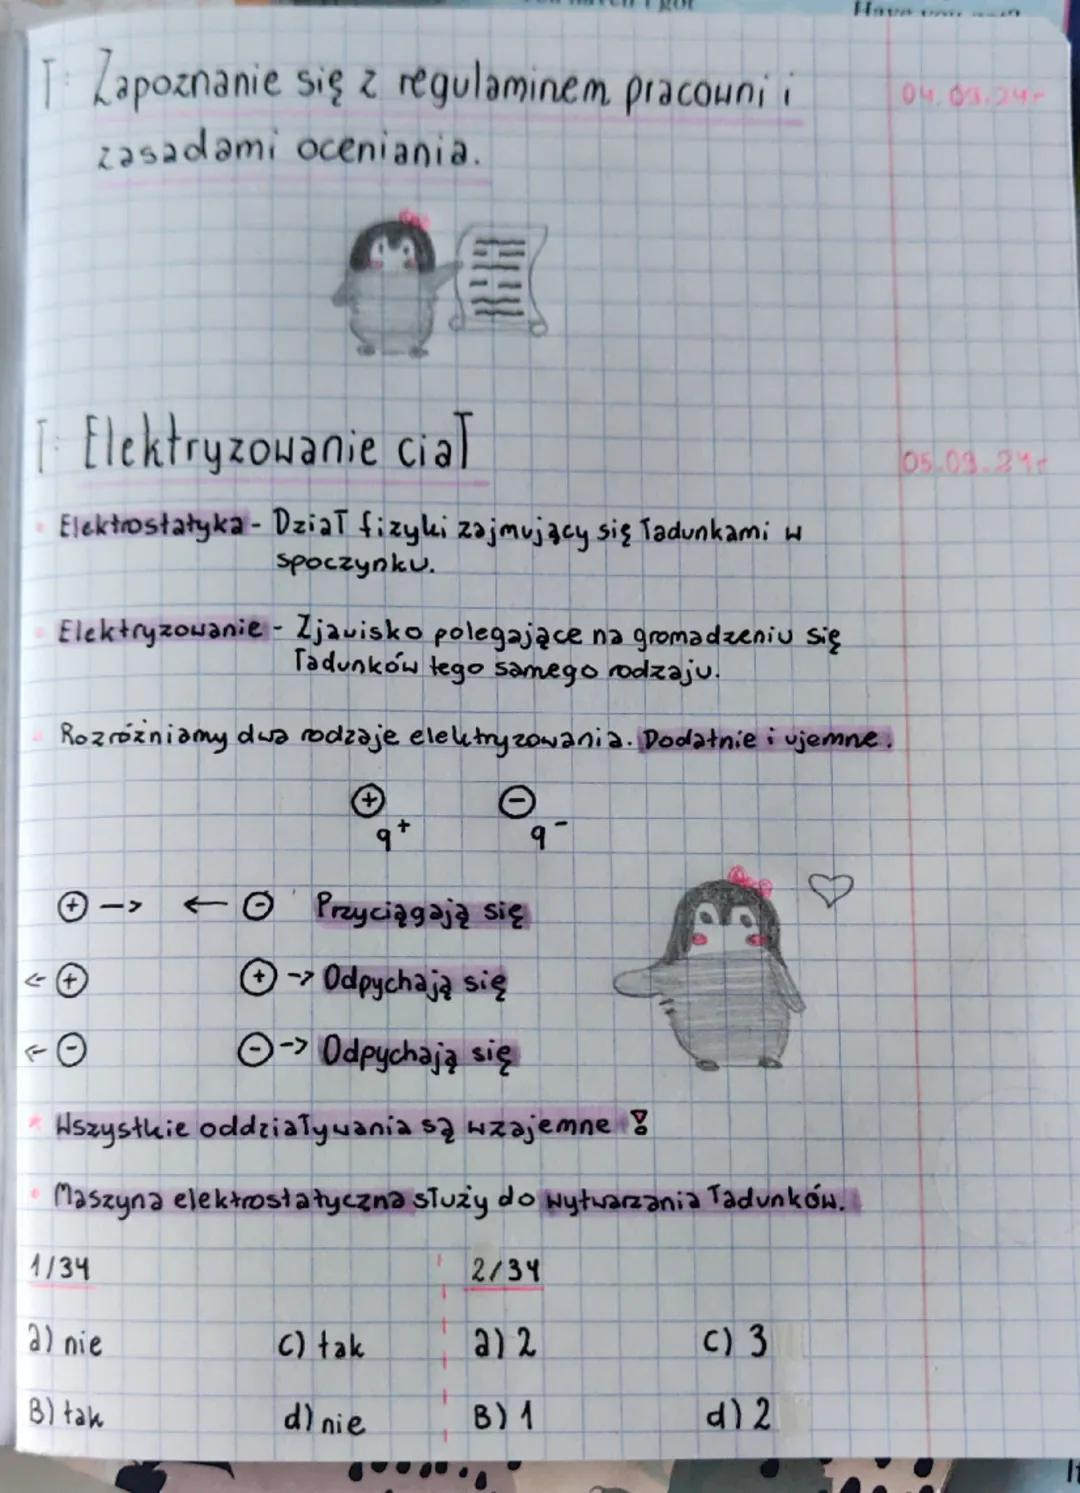 Have you got?
T: Zapoznanie się z regulaminem pracowni i 04.09.24r
zasadami oceniania.
T: Elektryzowanie ciał 05.09.24r
• Elektrostatyka - Dział fizyki zajmujący się ładunkami w
spoczynku.
• Elektryzowanie - Zjawisko polegające na gromadzeniu się
ładunków tego samego rodzaju.
• Rozróżniamy dwa rodzaje elektryzowania. Dodatnie i ujemne.
⊕ ⊖
q+ q-
⊕ --> <— ⊖ Przyciągają się
<- ⊕ ⊕ -> Odpychają się
<- ⊖ ⊖ -> Odpychają się
* Wszystkie oddziaływania są wzajemne !
• Maszyna elektrostatyczna służy do wytwarzania ładunków.
1/34 2/34
a) nie c) tak a) 2 c) 3
B) tak d) nie B) 1 d) 2